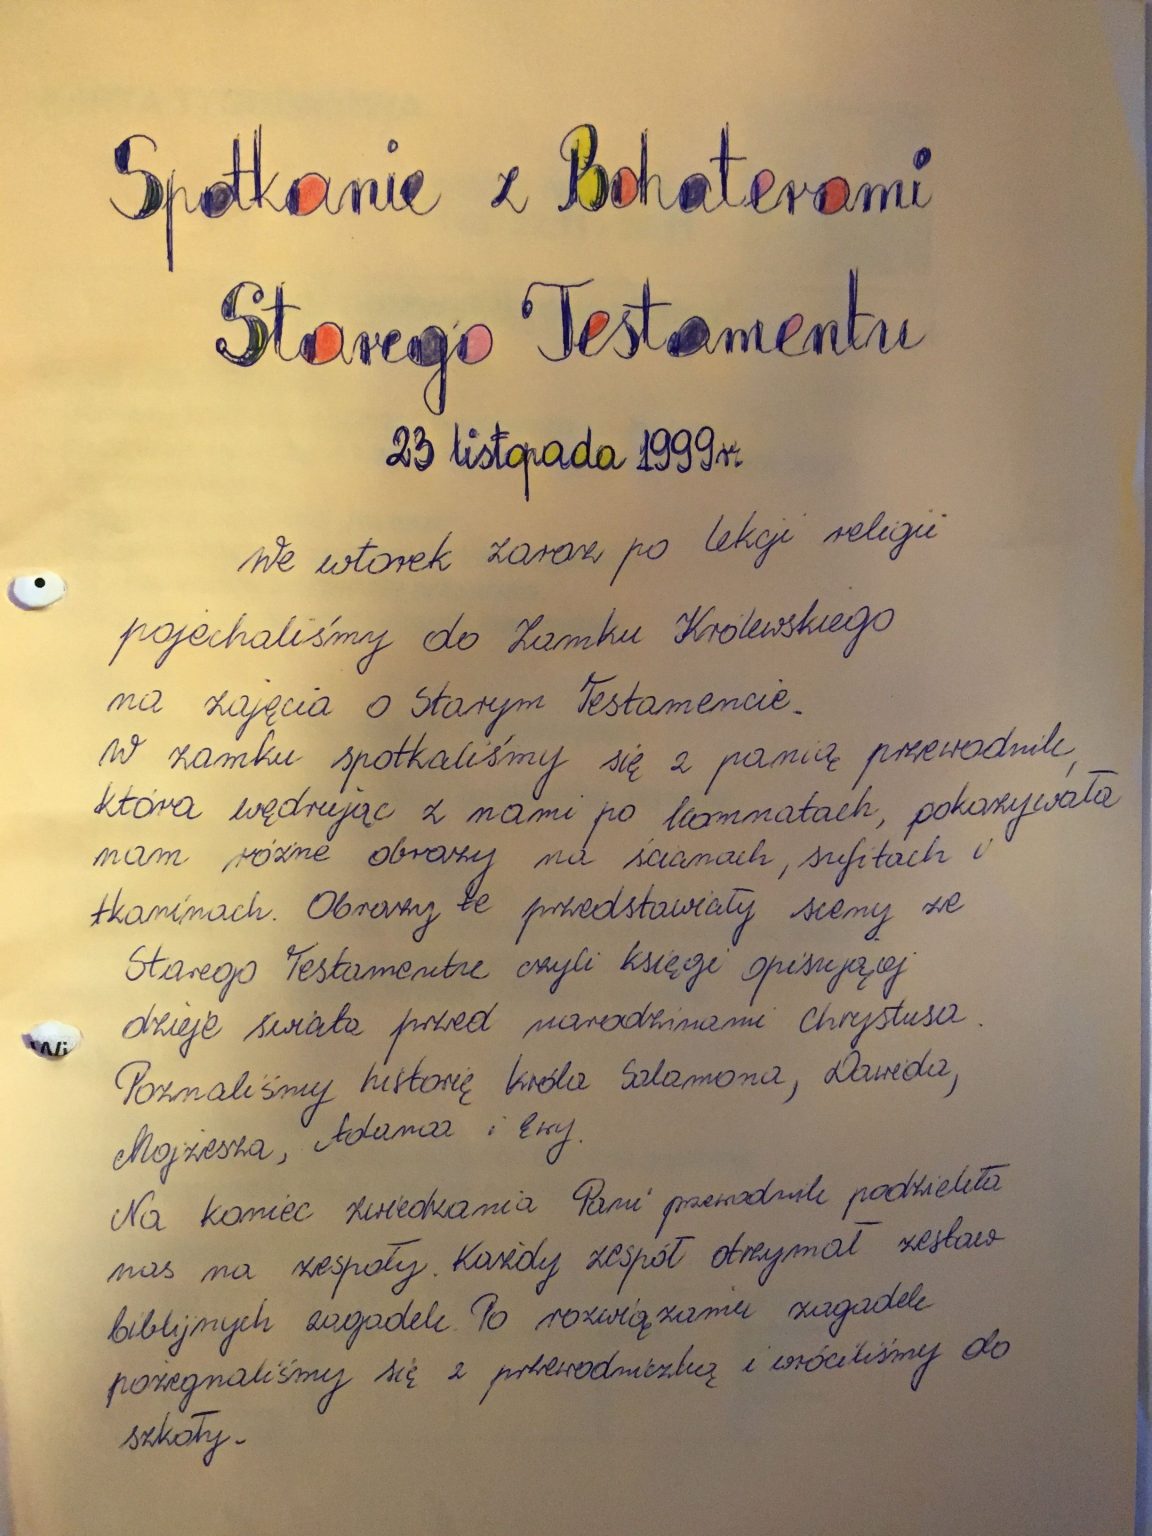 Spotkanie z Bohaterami
Starego Testamentu
23 listopada 1999r.
We wtorek zaraz po lekcji religii
pojechaliśmy do Zamku Królewskiego
na zajęcia o Starym Testamencie.
W zamku spotkaliśmy się z panią przewodnik,
która wędrując z nami po komnatach, pokazywała
nam różne obrazy na ścianach, sufitach i
tkaninach. Obrazy te przedstawiały sceny ze
Starego Testamentu czyli księgi opisującej
dzieje świata przed narodzinami Chrystusa.
Poznaliśmy historię króla Salamona, Dawida,
Mojżesza, Adama i Ewy.
Na koniec zwiedzania Pani przewodnik podzieliła
nas na zespoły. Każdy zespół otrzymał zestaw
biblijnych zagadek. Po rozwiązaniu zagadek
pożegnaliśmy się z przewodniczką i wróciliśmy do
szkoły.